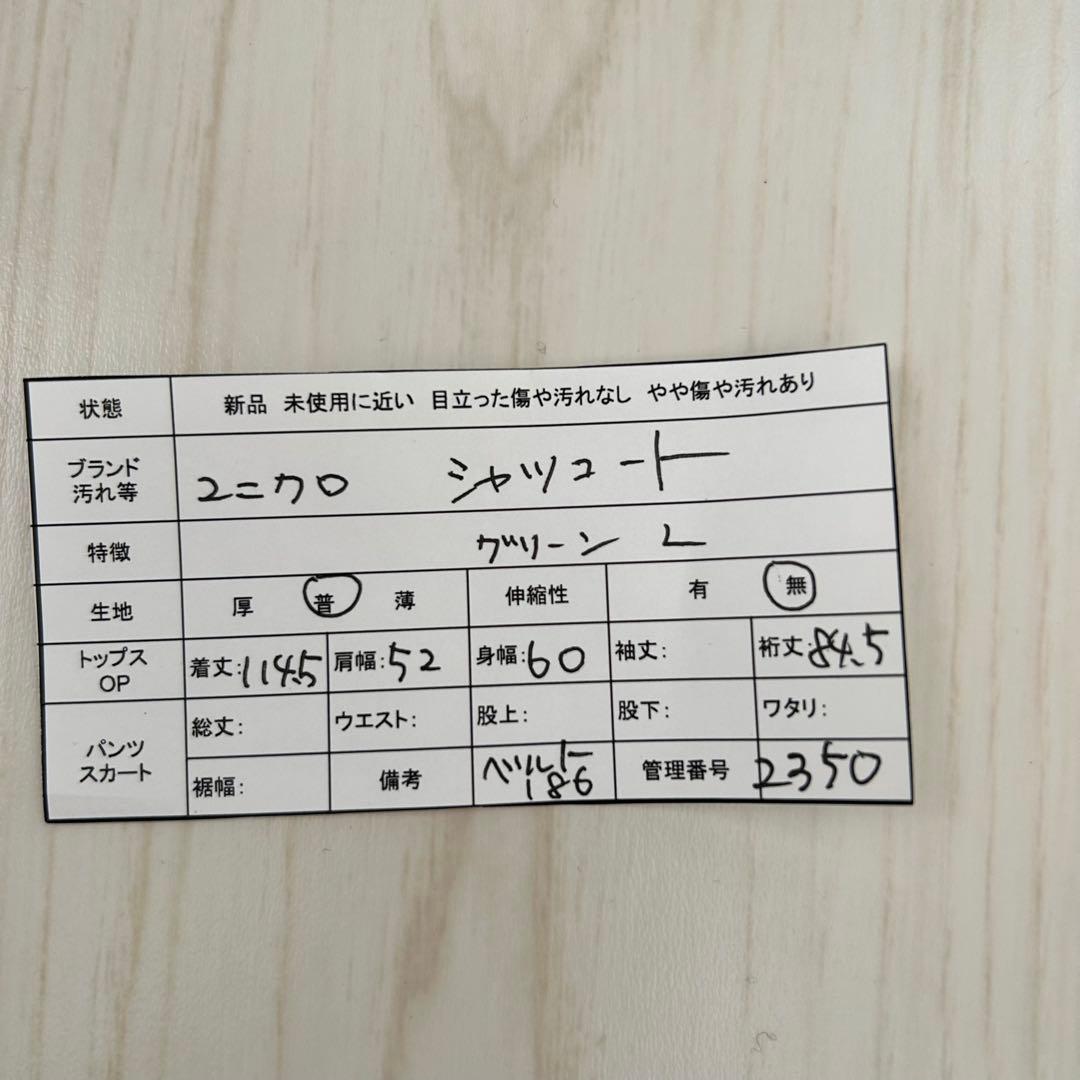 状態 新品 未使用に近い 目立った傷や汚れなし やや傷や汚れあり
ブランド
汚れ等
ユニクロ シャツコート
特徴 グリーン L
生地 厚 普 薄 伸縮性 有 無
トップス
OP
着丈:114.5 肩幅:52 身幅:60 袖丈: 裄丈:84.5
パンツ
スカート
総丈: ウエスト: 股上: 股下: ワタリ:
裾幅: 備考 ベルト 186 管理番号 2350